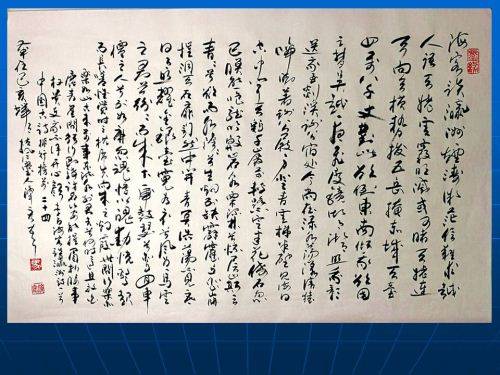 海客谈瀛洲烟涛微茫信难求越
人语天姥云霞明灭或可睹天姥连
天向天横势拔五岳掩赤城天台
四万八千丈对此欲倒东南倾我欲因
之梦吴越一夜飞度镜湖月湖月照我影
送我至剡溪谢公宿处今尚在渌水荡漾清猿
啼脚著谢公屐身登青云梯半壁见海日
空中闻天鸡千岩万转路不定迷花倚石忽
已暝熊咆龙吟殷岩泉栗深林兮惊层巅云
青青兮欲雨水澹澹兮生烟列缺霹雳丘峦崩
摧洞天石扉訇然中开青冥浩荡不见底
日月照耀金银台霓为衣兮风为马云
之君兮纷纷而来下虎鼓瑟兮鸾回车
仙之人兮列如麻忽魂悸以魄动恍惊起
而长嗟惟觉时之枕席失向来之烟霞世间行乐
亦如此古来万事东流水别君去兮何时还且放白
鹿青崖间须行即骑访名山安能摧眉折腰事
权贵使我不得开心颜
中国古诗 二十四